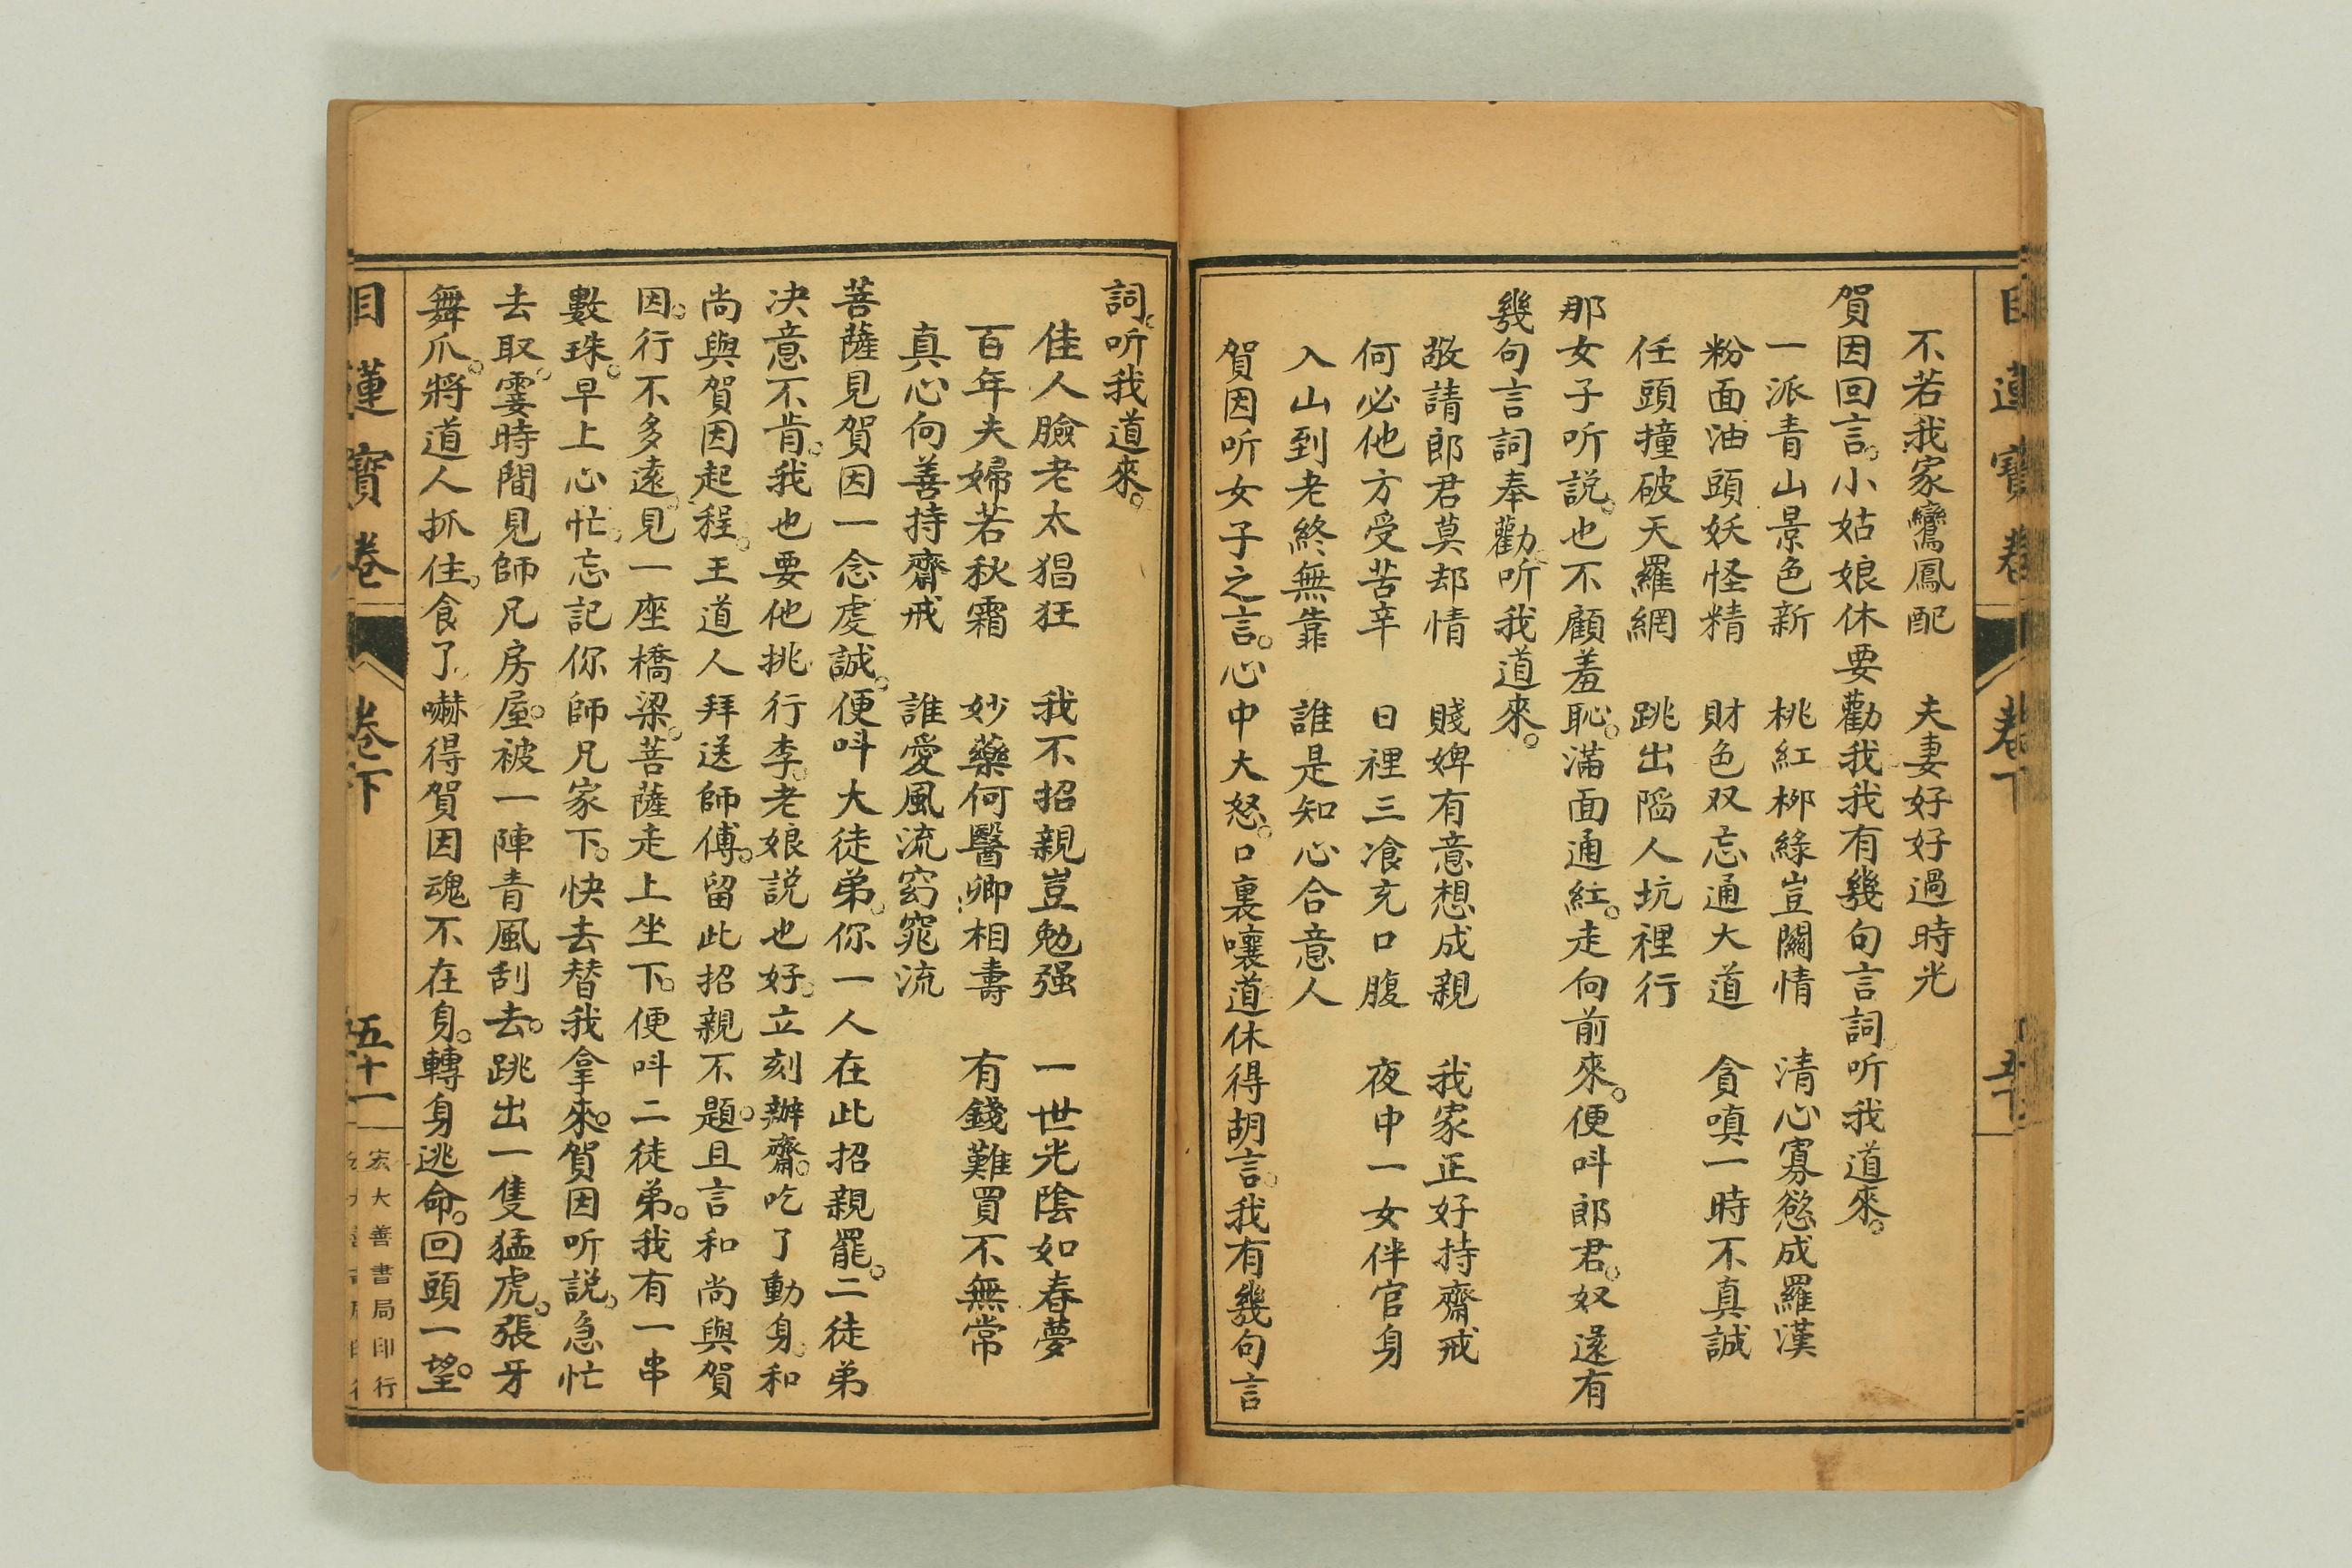 目蓮寶卷 卷下 五十
不若我家鸞鳳配 夫妻好好過時光
賀因回言。小姑娘休要勸我我有幾句言詞听我道來。
一派青山景色新 桃紅柳綠豈關情 清心寡慾成羅漢
粉面油頭妖怪精 財色双忘通大道 貪嗔一時不真誠
任頭撞破天羅網 跳出陷人坑裡行
那女子听説。也不顧羞恥。滿面通紅。走向前來。便呌郎君。奴遂有
幾句言詞奉勸。听我道來。
敬請郎君莫却情 賤婢有意想成親 我家正好持齋戒
何必他方受苦辛 日裡三飡充口腹 夜中一女伴官身
入山到老終無靠 誰是知心合意人
賀因听女子之言。心中大怒。口裏嚷道。休得胡言。我有幾句言
詞。听我道來。
佳人臉老太猖狂 我不招親豈勉强 一世光陰如春夢
百年夫婦若秋霜 妙藥何醫卿相壽 有錢難買不無常
真心向善持齋戒 誰愛風流窈窕流
菩薩見賀因一念虔誠。便呌大徒弟。你一人在此招親罷。二徒弟
决意不肯。我也要他挑行李。老娘説也好。立刻辦齋。吃了動身。和
尚與賀因起程。王道人拜送師傅。留此招親不題。且言和尚與賀
因。行不多遠。見一座橋梁。菩薩走上坐下。便呌二徒弟。我有一串
數珠。早上心忙。忘記你師兄家下。快去替我拿來。賀因听説。急忙
去取。霎時間見師兄房屋。被一陣青風刮去。跳出一隻猛虎。張牙
舞爪。將道人抓住。食了。嚇得賀因魂不在身。轉身逃命。回頭一望。
目蓮寶卷 卷下 五十一 宏大善書局印行